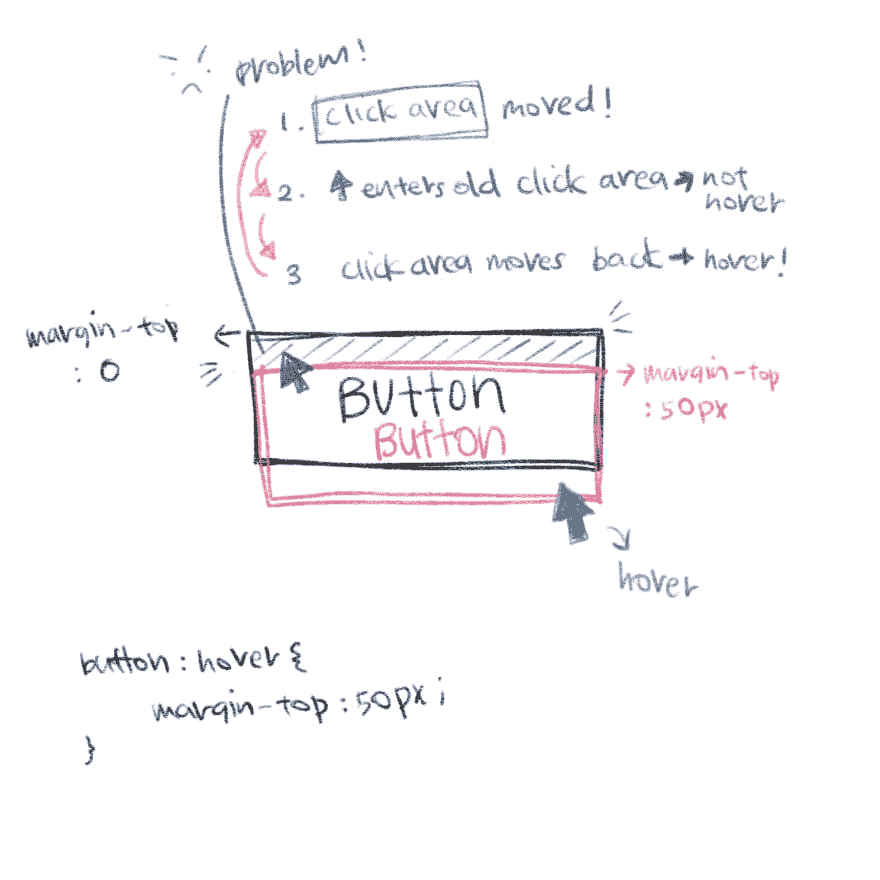 problem!
1. click area moved!
2. enters old click area → not
hover
3 click area moves back → hover!
margin-top
: 0
Button
Button
→ margin-top
: 50px
hover
button : hover {
margin-top : 50px ;
}